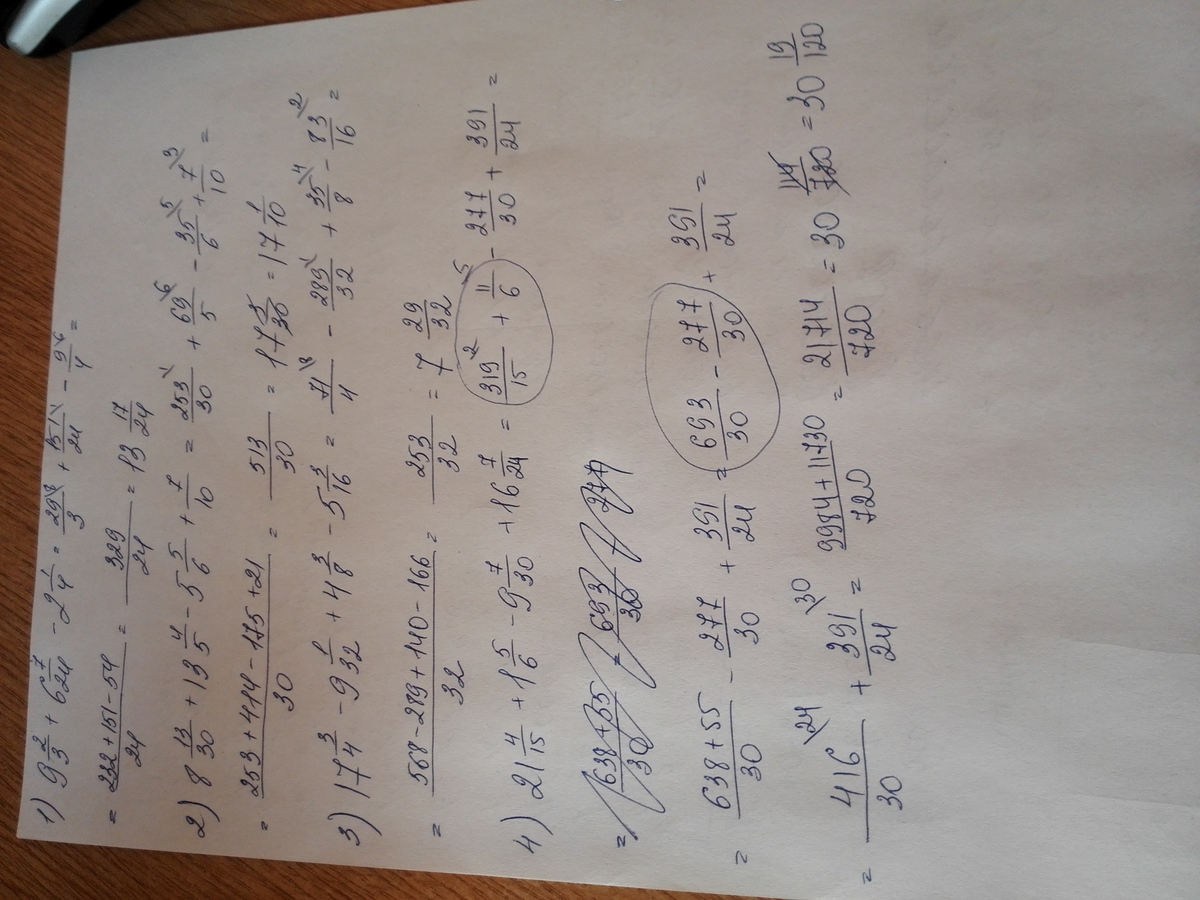 1) 9 2/3 + 6 7/24 - 2 1/4 = 29/3 \8 + 151/24 \1 - 9/4 \6 =
= (232+151-54)/24 = 329/24 = 13 17/24
2) 8 13/30 + 13 4/5 - 5 5/6 + 7/10 = 253/30 \1 + 69/5 \6 - 35/6 \5 + 7/10 \3 =
= (253+414-175+21)/30 = 513/30 = 17 3/30 = 17 1/10
3) 17 3/4 - 9 1/32 + 4 3/8 - 5 3/16 = 71/4 \8 - 289/32 \1 + 35/8 \4 - 83/16 \2 =
= (568-289+140-166)/32 = 253/32 = 7 29/32
4) 21 4/15 + 1 5/6 - 9 7/30 + 16 7/24 = 319/15 \2 + 11/6 \5 - 277/30 + 391/24 =
= (638+55)/30 = 693/30 - 277
= (638+55)/30 - 277/30 + 391/24 = 693/30 - 277/30 + 391/24 =
= 416/30 \24 + 391/24 \30 = (9984+11730)/720 = 21714/720 = 30 114/720 = 30 19/120